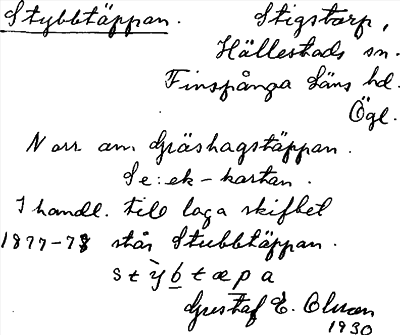 Stybbtäppan. Stigstorp,
Hällestads sn.
Finspånga läns hd.
Ögl.
Norr om Gräshagstäppan.
Se: ek-kartan.
I handl. till laga skiftet
1877-78 står Stubbtäppan.
s t y̆ b t æ p a
Gustaf E. Olsson
1930